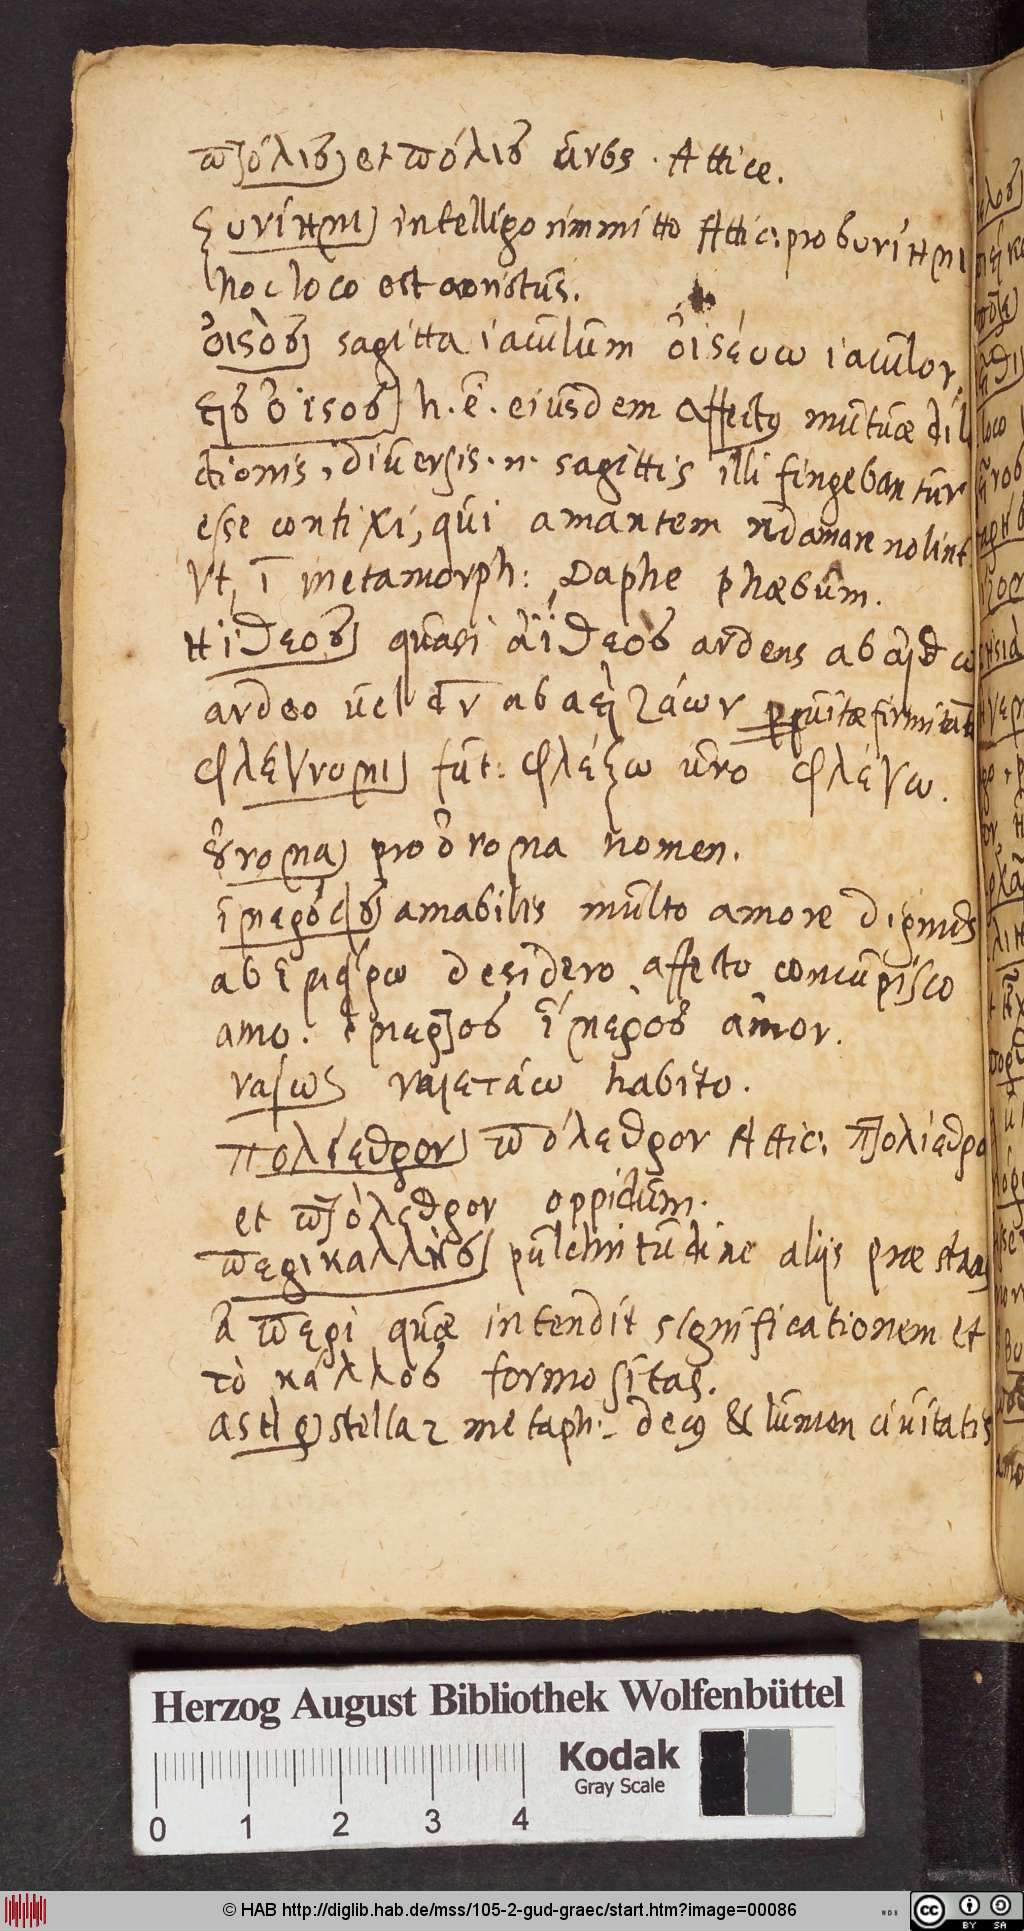 πτόλις] et πόλις urbs. Attice.
ξυνίημι] intelligo immitto Attic: pro συνίημι
hoc loco est aoristus.
ὀϊστὸς] sagitta iaculum ὀϊστέυω iaculor.
εἷς ὀϊστὸς] h. ē. eiusdem affectus mutuæ dil
ctionis, diversis .n. sagittis illi fingebantur
esse contixi, qui amantem redamare nolint.
Vt, ī metamorph: Daphe Phæbum.
ηΐθεος] quasi αἴθεος ardens ab αἴθω
ardeo vel ab ζάων vitæ firmitate
φλέγομαι] fut: φλέξω vero φλέγω.
οὔνομα] pro ὄνομα nomen.
ἱμερόεις] amabilis multo amore dignus
ab ἱμείρω desidero affecto concupisco
amo. ἵμερος amor.
ναίω] ναιετάω habito.
πολίεθρον] πόλεθρον Attic: πτολίεθρο
et πτόλεθρον oppidum.
περικαλλὴς] pulchritudine aliis præstans
à περὶ quæ intendit significationem et
τὸ κάλλος formositas.
ἀστὴρ stella metaph: decus & lumen civitatis
Herzog August Bibliothek Wolfenbüttel
Kodak
Gray Scale
0 1 2 3 4
© HAB http://diglib.hab.de/mss/105-2-gud-graec/start.htm?image=00086
WDB
cc BY SA